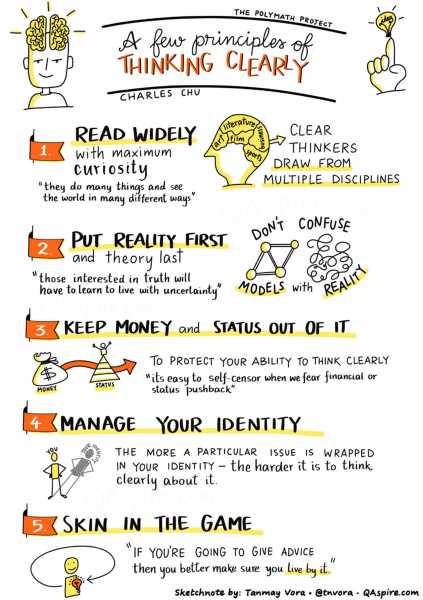 THE POLYMATH PROJECT
A few principles of
THINKING CLEARLY
CHARLES CHU
idea
1. READ WIDELY
with maximum
curiosity
"they do many things and see
the world in many different ways"
literature
art
film
sports
CLEAR
THINKERS
DRAW FROM
MULTIPLE DISCIPLINES
2. PUT REALITY FIRST
and theory last
"those interested in truth will
have to learn to live with uncertainty"
DON'T CONFUSE
MODELS with REALITY
3. KEEP MONEY and STATUS OUT OF IT
$
MONEY
STATUS
TO PROTECT YOUR ABILITY TO THINK CLEARLY
"its easy to self-censor when we fear financial or
status pushback"
4 MANAGE YOUR IDENTITY
YOU
THE MORE A PARTICULAR ISSUE IS WRAPPED
IN YOUR IDENTITY – the harder it is to think
clearly about it.
5. SKIN IN THE GAME
"IF YOU'RE GOING TO GIVE ADVICE
then you better make sure you live by it."
Sketchnote by: Tanmay Vora • @tnvora • QAspire.com